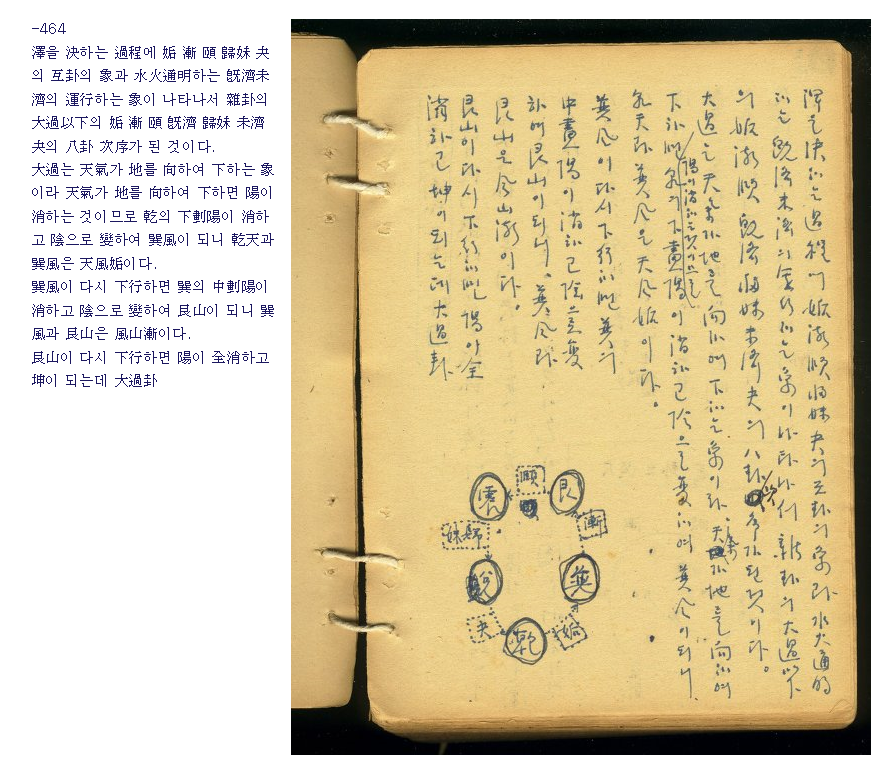 -464
澤을 決하는 過程에 姤 漸 頤 歸妹 夬
의 互卦의 象과 水火通明하는 旣濟未
濟의 運行하는 象이 나타나서 雜卦의
大過以下의 姤 漸 頤 旣濟 歸妹 未濟
夬의 八卦 次序가 된 것이다.
大過는 天氣가 地를 向하여 下하는 象
이라 天氣가 地를 向하여 下하면 陽이
消하는 것이므로 乾의 下劃陽이 消하
고 陰으로 變하여 巽風이 되니 乾天과
巽風은 天風姤이다.
巽風이 다시 下行하면 巽의 中劃陽이
消하고 陰으로 變하여 艮山이 되니 巽
風과 艮山은 風山漸이다.
艮山이 다시 下行하면 陽이 全消하고
坤이 되는데 大過卦
澤을 決하는 過程에 姤漸頤歸妹夬의 互卦의 象과 水火通明
하는 旣濟未濟의 運行하는 象이 나타나서 雜卦의 大過以下
의 姤漸頤 旣濟 歸妹 未濟 夬의 八卦 次序가 된 것이다.
大過는 天氣가 地를 向하여 下하는 象이라 天氣가 地를 向하여
下하면 陽이 消하는 것이므로 乾의 下畫陽이 消하고 陰으로 變하여 巽風이 되니
乾天과 巽風은 天風姤이다.
巽風이 다시 下行하면 巽의
中畫陽이 消하고 陰으로 變
하여 艮山이 되니 巽風과
艮山은 風山漸이다.
艮山이 다시 下行하면 陽이 全
消하고 坤이 되는데 大過卦
頤
震
艮
歸妹
漸
兌
巽
夬
乾
姤